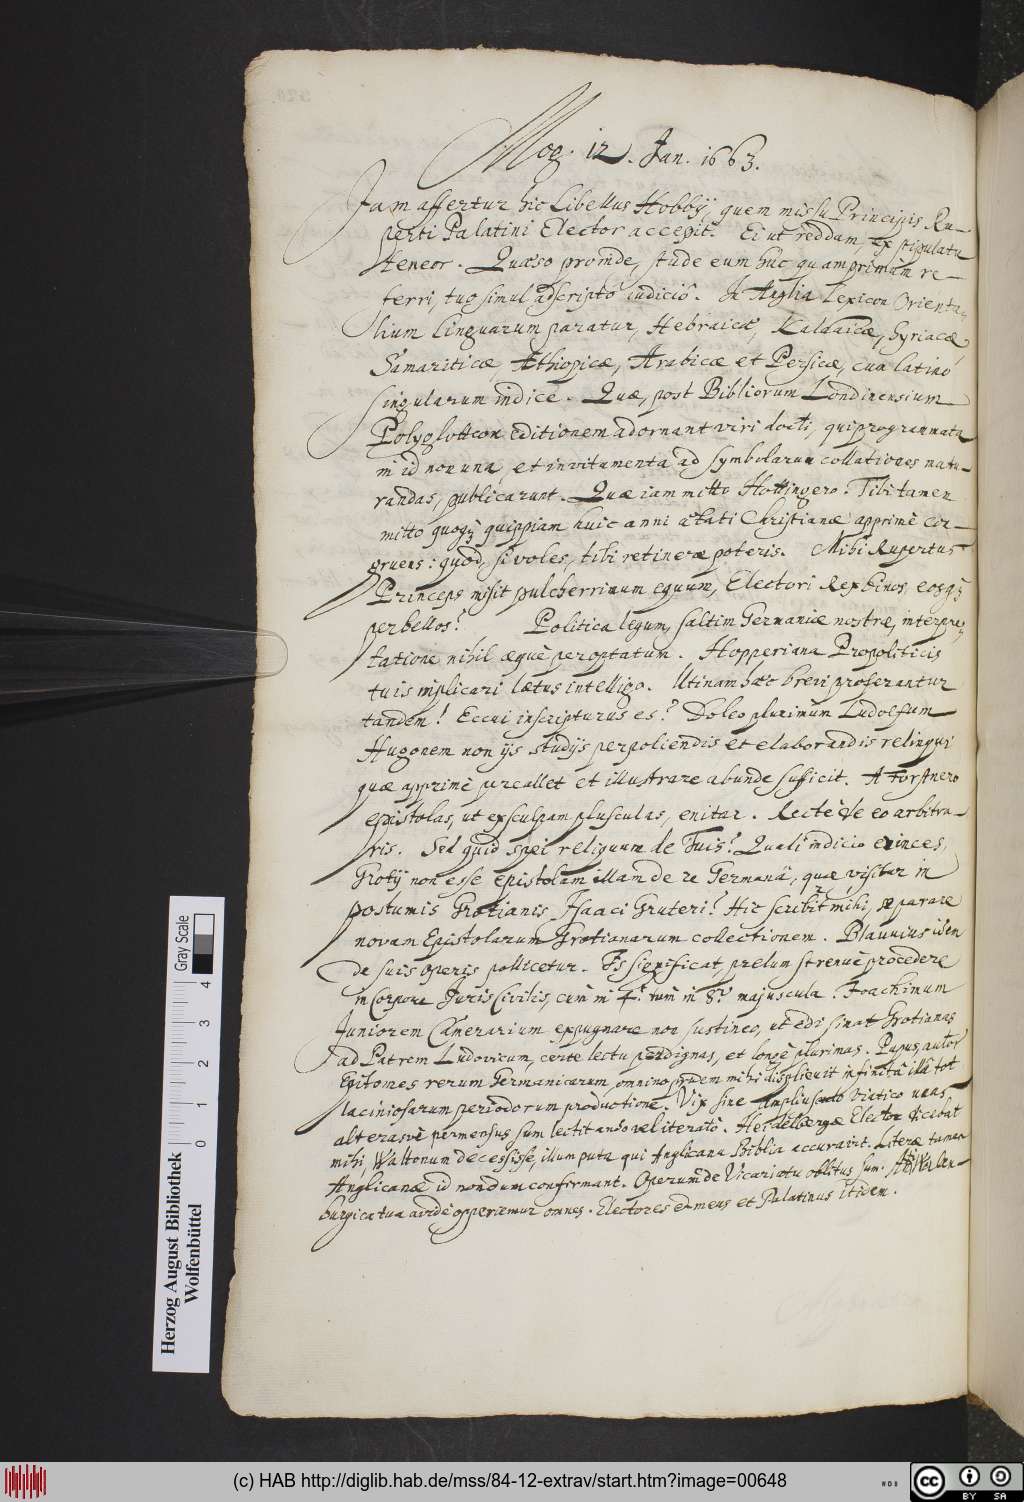 Mog. 12. Jan. 1663.
Jam affertur hic Libellus Hobbÿ, quem missu Principis Ru-
perti Palatini Elector accepit. Ei ut reddam, ex stipulatu
teneor. Quæso proinde, stude eum huc quamprimum re-
ferri, tuo simul adscripto iudicio. In Anglia Lexicon Orienta-
lium linguarum paratur, Hebraicæ, Kaldaicæ, Syriacæ,
Samariticæ, Æthiopicæ, Arabicæ et Persicæ, cum latino
singularum indice. Quæ, post Bibliorum Londinensium
Polyglotton editionem adornant viri docti, qui programmata
in id non una, et invitamenta ad symbolarum collationes matu-
randas, publicarunt. Quæ iam mitto Hottingero. Tibi tamen
mitto quoq; quippiam huic anni ætati Christianæ apprimè con-
gruens: quod, si voles, tibi retinere poteris. Mihi Rupertus
Princeps misit pulcherrimum equum, Electori Rex binos, eosq;
perbellos. Politica legum, saltim Germaniæ nostræ, interpre-
tatione nihil æquè peroptatum. Hopperiana Propoliticis
tuis implicari lætus intelligo. Utinam hæc brevi proferantur
tandem! Eccui inscripturus es? Doleo plurimum Ludolfum
Hugonem non ijs studijs perpoliendis et elaborandis relinqui
quæ apprimè percallet et illustrare abunde sufficit. A Forstnero
epistolas, ut exsculpam plusculas, enitar. Rectè de eo arbitra-
ris. Sed quid spei reliquum de Tuis? Quali indicio evinces,
Grotij non esse epistolam illam de re Germanâ, quæ visitur in
postumis Grotianis Isaaci Gruteri? Hic scribit mihi, se parare
novam Epistolarum Grotianarum collectionem. Blauvius idem
de suis operis pollicetur. Is significat, prelum strenuè procedere
in Corpore Juris Civilis, cùm in 4.º tùm in 8.º majuscula. Joachimum
Juniorem Camerarium expugnare non sustineo, ut edi sinat Grotianas
ad Patrem Ludovicum, certe lectu perdignas, et longè plurimas. Pupus, autor
Epitomes rerum Germanicarum, omnino quidem mihi displicuit infinitâ illâ tot
laciniosarum periodorum productione. Vix sine ampliusculo viatico unas
alterasvè permensus sum lectitando vel iterato. Heidelbergæ Elector dicebat
mihi, Waltonum decessisse, illum puta, qui Anglicana Biblia accuravit. Literæ tamen
Anglicanæ id nondum confirmant. Operum de Vicariatu oblitus sum. At Walden-
burgica tua avidè opperiemur omnes. Electores et meus et Palatinus itidem.
Herzog August Bibliothek
Wolfenbüttel
0 1 2 3 4
Gray Scale
(c) HAB http://diglib.hab.de/mss/84-12-extrav/start.htm?image=00648
cc BY SA